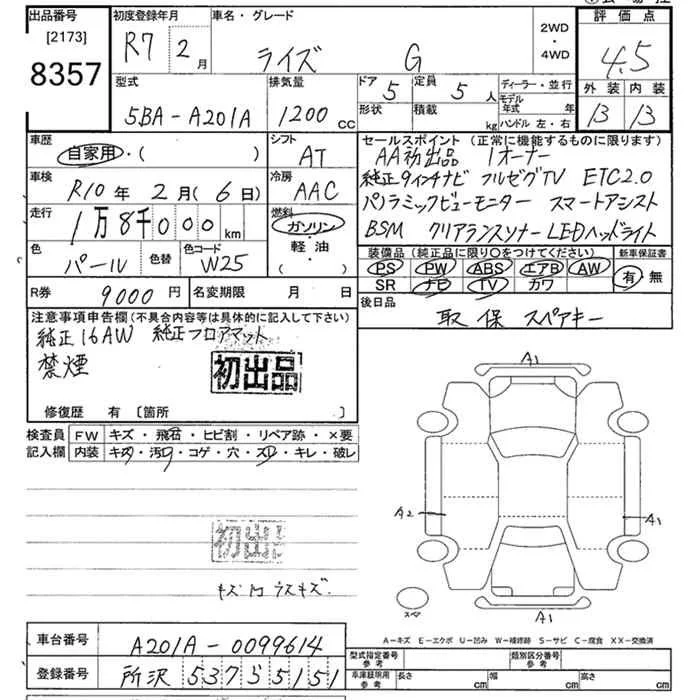 出品番号 初度登録年月 車名・グレード 2WD・4WD 評価点
[2173] R7年2月 ライズ G 4.5
8357
型式 排気量 ドア 5 定員 5人 ディーラー・並行 外装 内装
5BA-A201A 1200cc 形状 積載 kg モデル年式 年 B B
ハンドル 左・右
車歴 シフト セールスポイント(正常に機能するものに限ります)
自家用・( ) AT AA初出品 1オーナー
車検 冷房 純正9インチナビ フルセグTV ETC2.0
R10年2月(6日) AAC パノラミックビューモニター スマートアシスト
走行 燃料 BSM クリアランスソナー LEDヘッドライト
1万8千000km ガソリン・軽油・( )
色 色替 色コード 装備品(純正品に限り○をつけてください) 新車保証書
パール W25 PS PW ABS エアB AW 有・無
SR ナビ TV カワ
R券 9000円 名変期限 月 日 後日品
取 保 スペアキー
注意事項申告欄(不具合内容等は具体的に記入して下さい)
純正16AW 純正フロアマット
禁煙 初出品
修復歴 有 〔箇所 〕
検査員 FW キズ・飛石・ヒビ割・リペア跡・×要
記入欄 内装 キズ・汚レ・コゲ・穴・スレ・キレ・破レ
A1
A2 A1
初出品
スペ A1
A−キズ E−エクボ U−凹み W−補修跡 S−サビ C−腐食 XX−交換済
車台番号 A201A-0099614 型式指定番号 参考 類別区分番号 参考
登録番号 所沢 537 5 5151 車庫証明用 参考 長さ cm 幅 cm 高さ cm